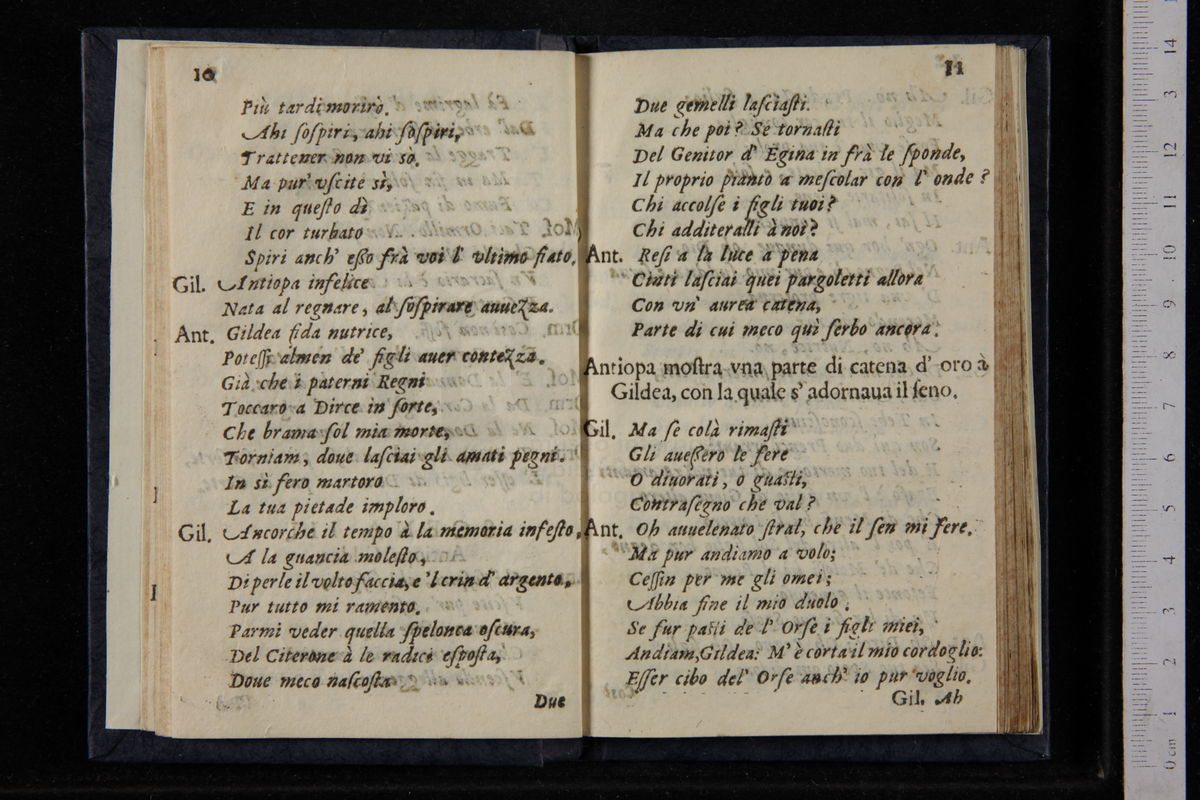 10
Più tardi morirò.
Ahi ſoſpiri, ahi ſoſpiri,
Trattener non vi so.
Ma pur' vſcite sì,
E in queſto dì
Il cor turbato
Spiri anch' eßo frà voi l' vltimo fiato.
Gil. Antiopa infelice
Nata al regnare, al ſoſpirare auuezza.
Ant. Gildea fida nutrice,
Poteſſi almen de' figli auer contezza.
Già che i paterni Regni
Toccaro a Dirce in ſorte,
Che brama ſol mia morte,
Torniam, doue laſciai gli amati pegni.
In sì fero martoro
La tua pietade imploro.
Gil. Ancorche il tempo à la memoria infeſto,
A la guancia moleſto,
Di perle il volto faccia, e 'l crin d' argento,
Pur tutto mi ramento.
Parmi veder quella ſpelonca oſcura,
Del Citerone à le radici eſpoſta,
Doue meco naſcoſta
Due
11
Due gemelli laſciaſti.
Ma che poi? Se tornaſti
Del Genitor d' Egina in frà le ſponde,
Il proprio pianto a meſcolar con l' onde?
Chi accolſe i figli tuoi?
Chi additeralli à noi?
Ant. Reſi a la luce a pena
Cinti laſciai quei pargoletti allora
Con vn' aurea catena,
Parte di cui meco quì ſerbo ancora.
Antiopa moſtra vna parte di catena d' oro à
Gildea, con la quale s' adornaua il ſeno.
Gil. Ma ſe colà rimaſti
Gli aueßero le fere
O diuorati, o guaſti,
Contraſegno che val?
Ant. Oh auuelenato ſtral, che il ſen mi fere.
Ma pur andiamo a volo;
Ceſſin per me gli omei;
Abbia fine il mio duolo.
Se fur paſti de l' Orſe i figli miei,
Andiam, Gildea: M' è corta il mio cordoglio:
Eſſer cibo del' Orſe anch' io pur voglio.
Gil. Ah